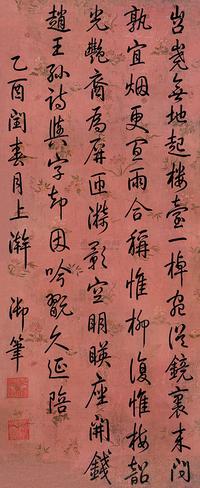 岧嶤無地起樓臺一棹宛從鏡裏来問
孰宜烟更宜雨合稱惟柳復惟梅韶
光艷裔高屏匝漾影空明暎座開錢
趙王孫詩與字却因吟翫久延陪
乙酉閏春月上澣
御筆